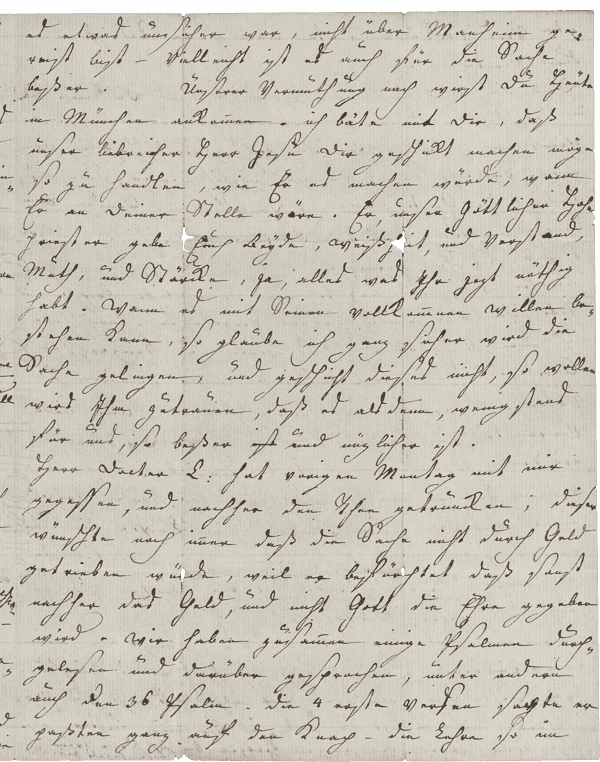 es etwas unsicher war, nicht über Manheim ge-
reist bist – vielleicht ist es auch für die Sache
beßer. Unserer Vermuthung nach wirst Du heute
in München ankommen. ich bäte mit Dir, daß
unser liebreicher Herr Jesu Dir geschikt machen möge
so zu handlen, wie Er es machen würde, wann
Er an Deiner Stelle wäre. Er, unser Göttlicher Hohe
priester gebe Euch Beyde, Weißheit, und Verstand,
Muth, und Stärcke, ja, alles was Ihr jezt nöthig
habt. Wann es mit Seinen vollkommnen willen be-
stehen kann, so glaube ich ganz sicher wird die
Sache gelingen, und geschicht dieses nicht, so wollen
wird Ihm zutrauen, daß es alsdenn, wenigstens
für uns, so beßer und nüzlicher ist.
Herr Docter L: hat vorigen Montag mit mir
gegessen, und nachher den Thee getruncken; dieser
wünschte noch immer daß die Sache nicht durch Geld
getrieben würde, weil er befürchtet daß sonst
nachher das Geld, und nicht Gott die Ehre gegeben
wird. Wir haben zusammen einige Psalmen durch-
gelesen und darüber gesprochen, unter andern
auch den 36 Psalm. die 4 erste Versen sagte er
paßten ganz auf den Knap – die Lehre so im